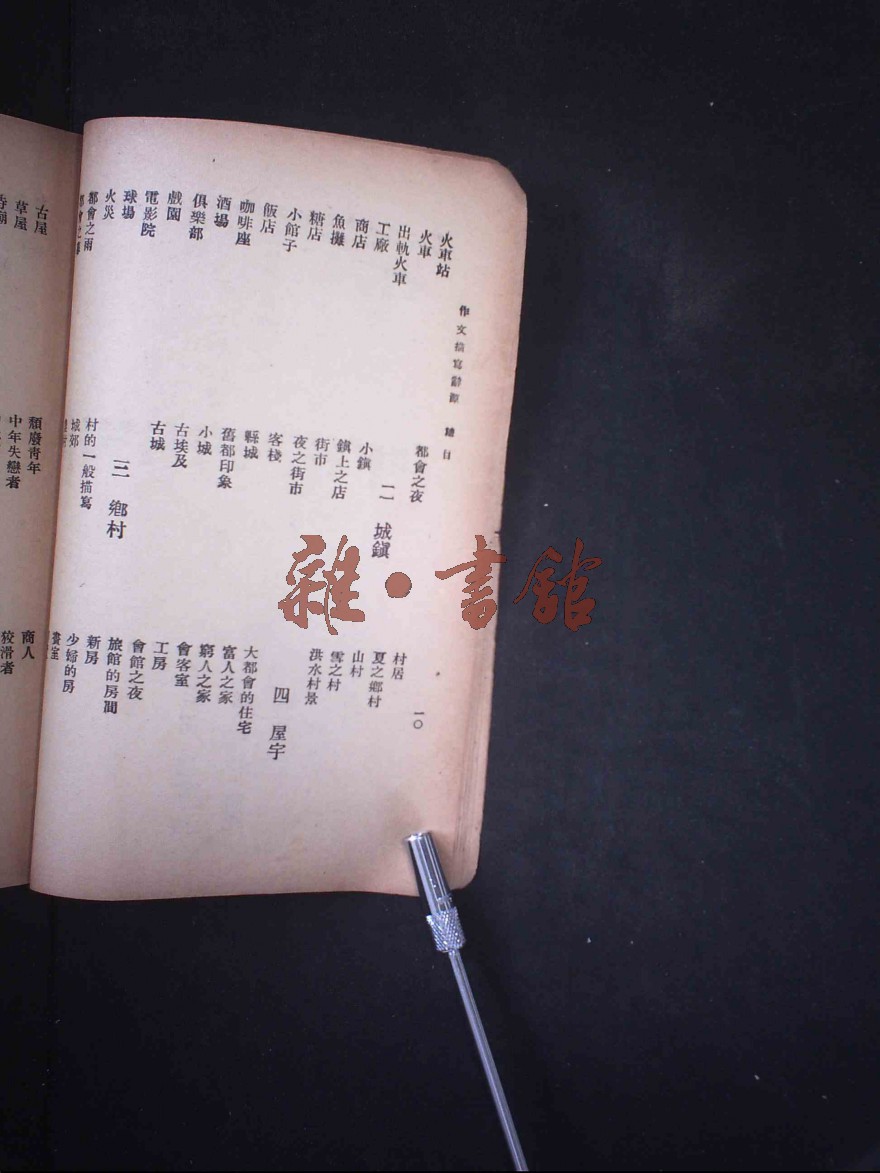 作文描寫辭源 總目
一〇
火車站
火車
出軌火車
工廠
商店
魚攤
糖店
小館子
飯店
咖啡座
酒場
俱樂部
戲園
電影院
球場
火災
都會之雨
都會之夜
二 城鎭
小鎭
鎭上之店
街市
夜之街市
客棧
縣城
舊都印象
小城
古埃及
古城
三 鄉村
村的一般描寫
城郊
村居
夏之鄉村
山村
雪之村
洪水村景
四 屋宇
大都會的住宅
富人之家
窮人之家
會客室
工房
會館之夜
旅館的房間
新房
少婦的房
畫室
古屋
草屋
頹廢青年
中年失戀者
商人
狡滑者
雜·書館